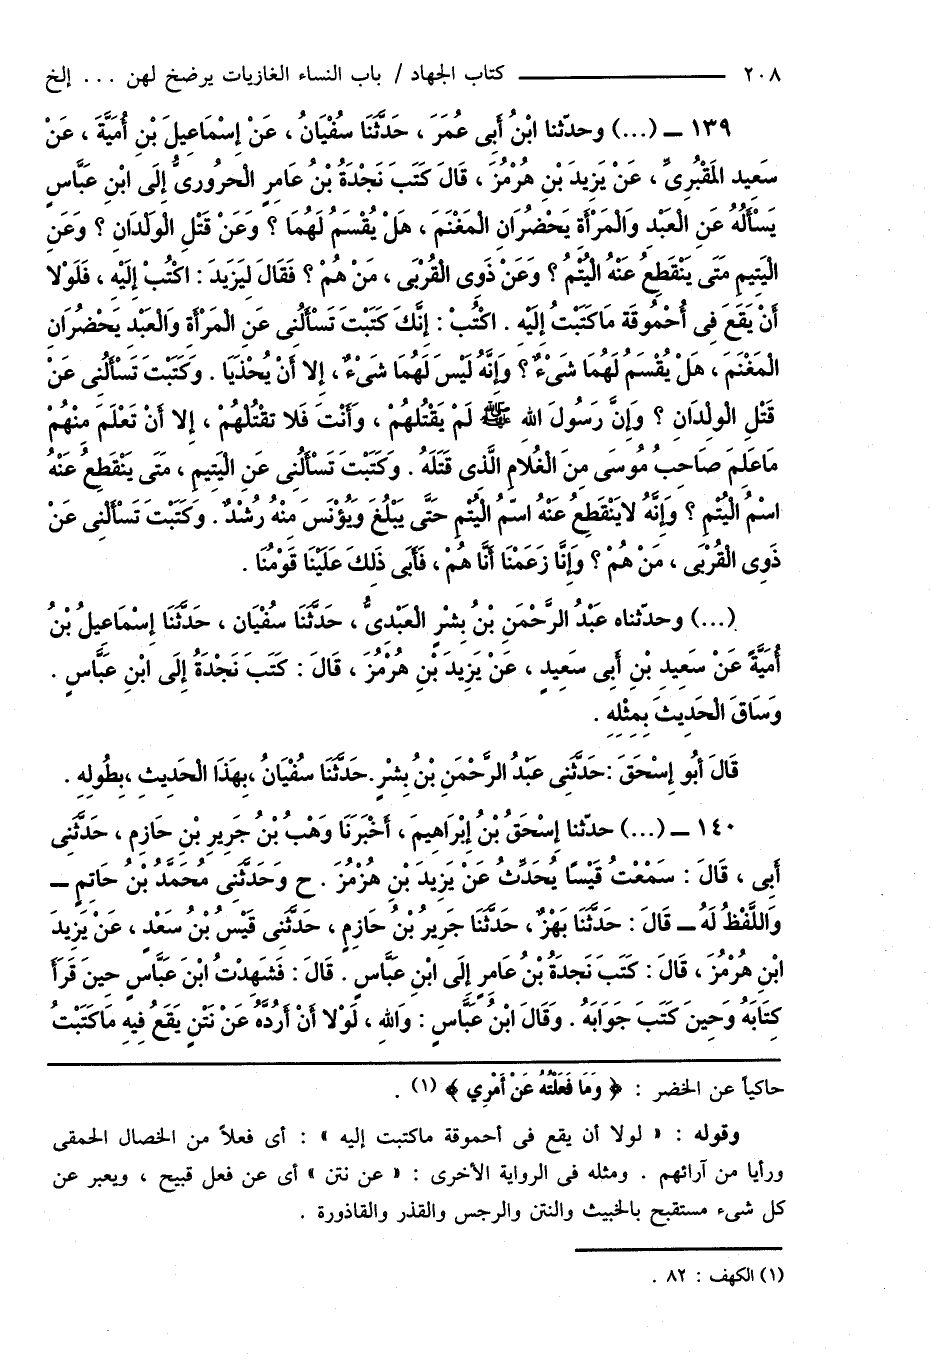 ٢٠٨ ــــــــــــــــ كتاب الجهاد / باب النساء الغازيات يرضخ لهن ... إلخ
١٣٩ ــ (...) وحدّثنا ابْنُ أَبِى عُمَرَ ، حَدَّثَنَا سُفْيَانُ ، عَنْ إِسْمَاعِيلَ بْنِ أُمَيَّةَ ، عَنْ
سَعِيد المَقْبُرِىِّ ، عَنْ يَزِيدَ بْنِ هُرْمُزَ ، قَالَ كَتَبَ نَجْدَةُ بْنُ عَامِرٍ الْحَرُورِىُّ إِلَى ابْنِ عَبَّاسٍ
يَسْأَلُهُ عَنِ الْعَبْدِ وَالْمَرْأَةِ يَحْضُرَانِ الْمَغْنَمَ ، هَلْ يُقْسَمُ لَهُمَا ؟ وَعَنْ قَتْلِ الْوِلْدَانِ ؟ وَعَنِ
الْيَتِيمِ مَتَى يَنْقَطِعُ عَنْهُ الْيُتْمُ ؟ وَعَنْ ذَوِى الْقُرْبَى ، مَنْ هُمْ ؟ فَقَالَ لِيَزِيدَ : اكْتُبْ إِلَيْهِ ، فَلَوْلا
أَنْ يَقَعَ فِى أُحْمُوقَةٍ مَاكَتَبْتُ إِلَيْهِ . اكْتُبْ : إِنَّكَ كَتَبْتَ تَسْأَلُنِى عَنِ الْمَرْأَةِ وَالْعَبْدِ يَحْضُرَانِ
الْمَغْنَمَ ، هَلْ يُقْسَمُ لَهُمَا شَىْءٌ ؟ وَإِنَّهُ لَيْسَ لَهُمَا شَىْءٌ ، إِلا أَنْ يُحْذَيَا . وَكَتَبْتَ تَسْأَلُنِى عَنْ
قَتْلِ الْوِلْدَانِ ؟ وَإِنَّ رَسُولَ اللهِ ﷺ لَمْ يَقْتُلْهُمْ ، وَأَنْتَ فَلا تَقْتُلْهُمْ ، إِلا أَنْ تَعْلَمَ مِنْهُمْ
مَاعَلِمَ صَاحِبُ مُوسَى مِنَ الْغُلامِ الَّذِى قَتَلَهُ . وَكَتَبْتَ تَسْأَلُنِى عَنِ الْيَتِيمِ ، مَتَى يَنْقَطِعُ عَنْهُ
اسْمُ الْيُتْمِ ؟ وَإِنَّهُ لايَنْقَطِعُ عَنْهُ اسْمُ الْيُتْمِ حَتَّى يَبْلُغَ وَيُؤْنَسَ مِنْهُ رُشْدٌ . وَكَتَبْتَ تَسْأَلُنِى عَنْ
ذَوِى الْقُرْبَى ، مَنْ هُمْ ؟ وَإِنَّا زَعَمْنَا أَنَّا هُمْ ، فَأَبَى ذَلِكَ عَلَيْنَا قَوْمُنَا .
(...) وحدّثناه عَبْدُ الرَّحْمَنِ بْنُ بِشْرٍ الْعَبْدِىُّ ، حَدَّثَنَا سُفْيَان ، حَدَّثَنَا إِسْمَاعِيلُ بْنُ
أُمَيَّةَ عَنْ سَعِيدِ بْنِ أَبِى سَعِيدٍ ، عَنْ يَزِيدَ بْنِ هُرْمُزَ ، قَالَ : كَتَبَ نَجْدَةُ إِلَى ابْنِ عَبَّاسٍ .
وَسَاقَ الْحَدِيثَ بِمِثْلِهِ .
قَالَ أَبُو إِسْحَقَ :حَدَّثَنِى عَبْدُ الرَّحْمَنِ بْنُ بِشْرٍ.حَدَّثَنَا سُفْيَانُ ،بِهَذَا الْحَدِيثِ ،بِطُولِهِ .
١٤٠ ــ (...) حدّثنا إِسْحَقُ بْنُ إِبْرَاهِيمَ ، أَخْبَرَنَا وَهْبُ بْنُ جَرِيرِ بْنِ حَازِمٍ ، حَدَّثَنِى
أَبِى ، قَالَ : سَمْعْتُ قَيْسًا يُحَدِّثُ عَنْ يَزِيدَ بْنِ هُرْمُزَ . ح وَحَدَّثَنِى مُحَمَّدُ بْنُ حَاتِمٍ ــ
وَاللَّفْظُ لَهُ ــ قَالَ : حَدَّثَنَا بَهْزٌ ، حَدَّثَنَا جَرِيرُ بْنُ حَازِمٍ ، حَدَّثَنِى قَيْسُ بْنُ سَعْدٍ ، عَنْ يَزِيدَ
ابْنِ هُرْمُزَ ، قَالَ : كَتَبَ نَجْدَةُ بْنُ عَامِرٍ إِلَى ابْنِ عَبَّاسٍ . قَالَ : فَشَهِدْتُ ابْنَ عَبَّاسٍ حِينَ قَرَأَ
كِتَابَهُ وَحِينَ كَتَبَ جَوَابَهُ . وَقَالَ ابْنُ عَبَّاسٍ : وَاللهِ ، لَوْلا أَنْ أَرُدَّهُ عَنْ نَتْنٍ يَقَعُ فِيهِ مَاكَتَبْتُ
حاكياً عن الخضر : ﴿ وَمَا فَعَلْتُهُ عَنْ أَمْرِي ﴾ (١) .
وقوله : « لولا أن يقع فى أحموقة ماكتبت إليه » : أى فعلاً من الخصال الحمقى
ورأيا من آرائهم . ومثله فى الرواية الأخرى : « عن نتن » أى عن فعل قبيح ، ويعبر عن
كل شىء مستقبح بالخبيث والنتن والرجس والقذر والقاذورة .
(١) الكهف : ٨٢ .